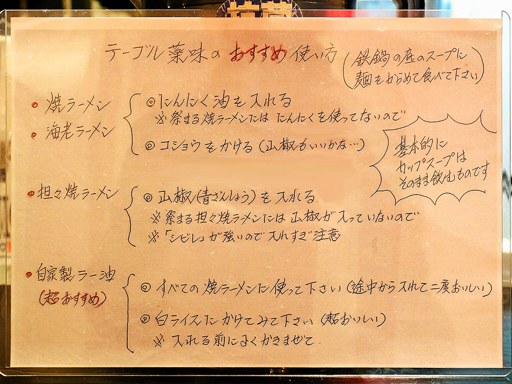 テーブル薬味のおすすめ使い方
(鉄鍋の底のスープに
麺をからめて食べて下さい)
・焼ラーメン
・海老ラーメン
◎にんにく油を入れる
※祭まる焼ラーメンにはにんにくを使ってないので
◎コショウをかける(山椒もいいかな…)
基本的に
カップスープは
そのまま飲むものです
・担々焼ラーメン
◎山椒(青さんしょう)を入れる
※祭まる担々焼ラーメンには山椒が入っていないので
※「シビレ」が強いので入れすぎ注意
・自家製ラー油
(超おすすめ)
◎すべての焼ラーメンに使って下さい(途中から入れて二度おいしい)
◎白ライスにかけてみて下さい(超おいしい)
※入れる前によくかきまぜて